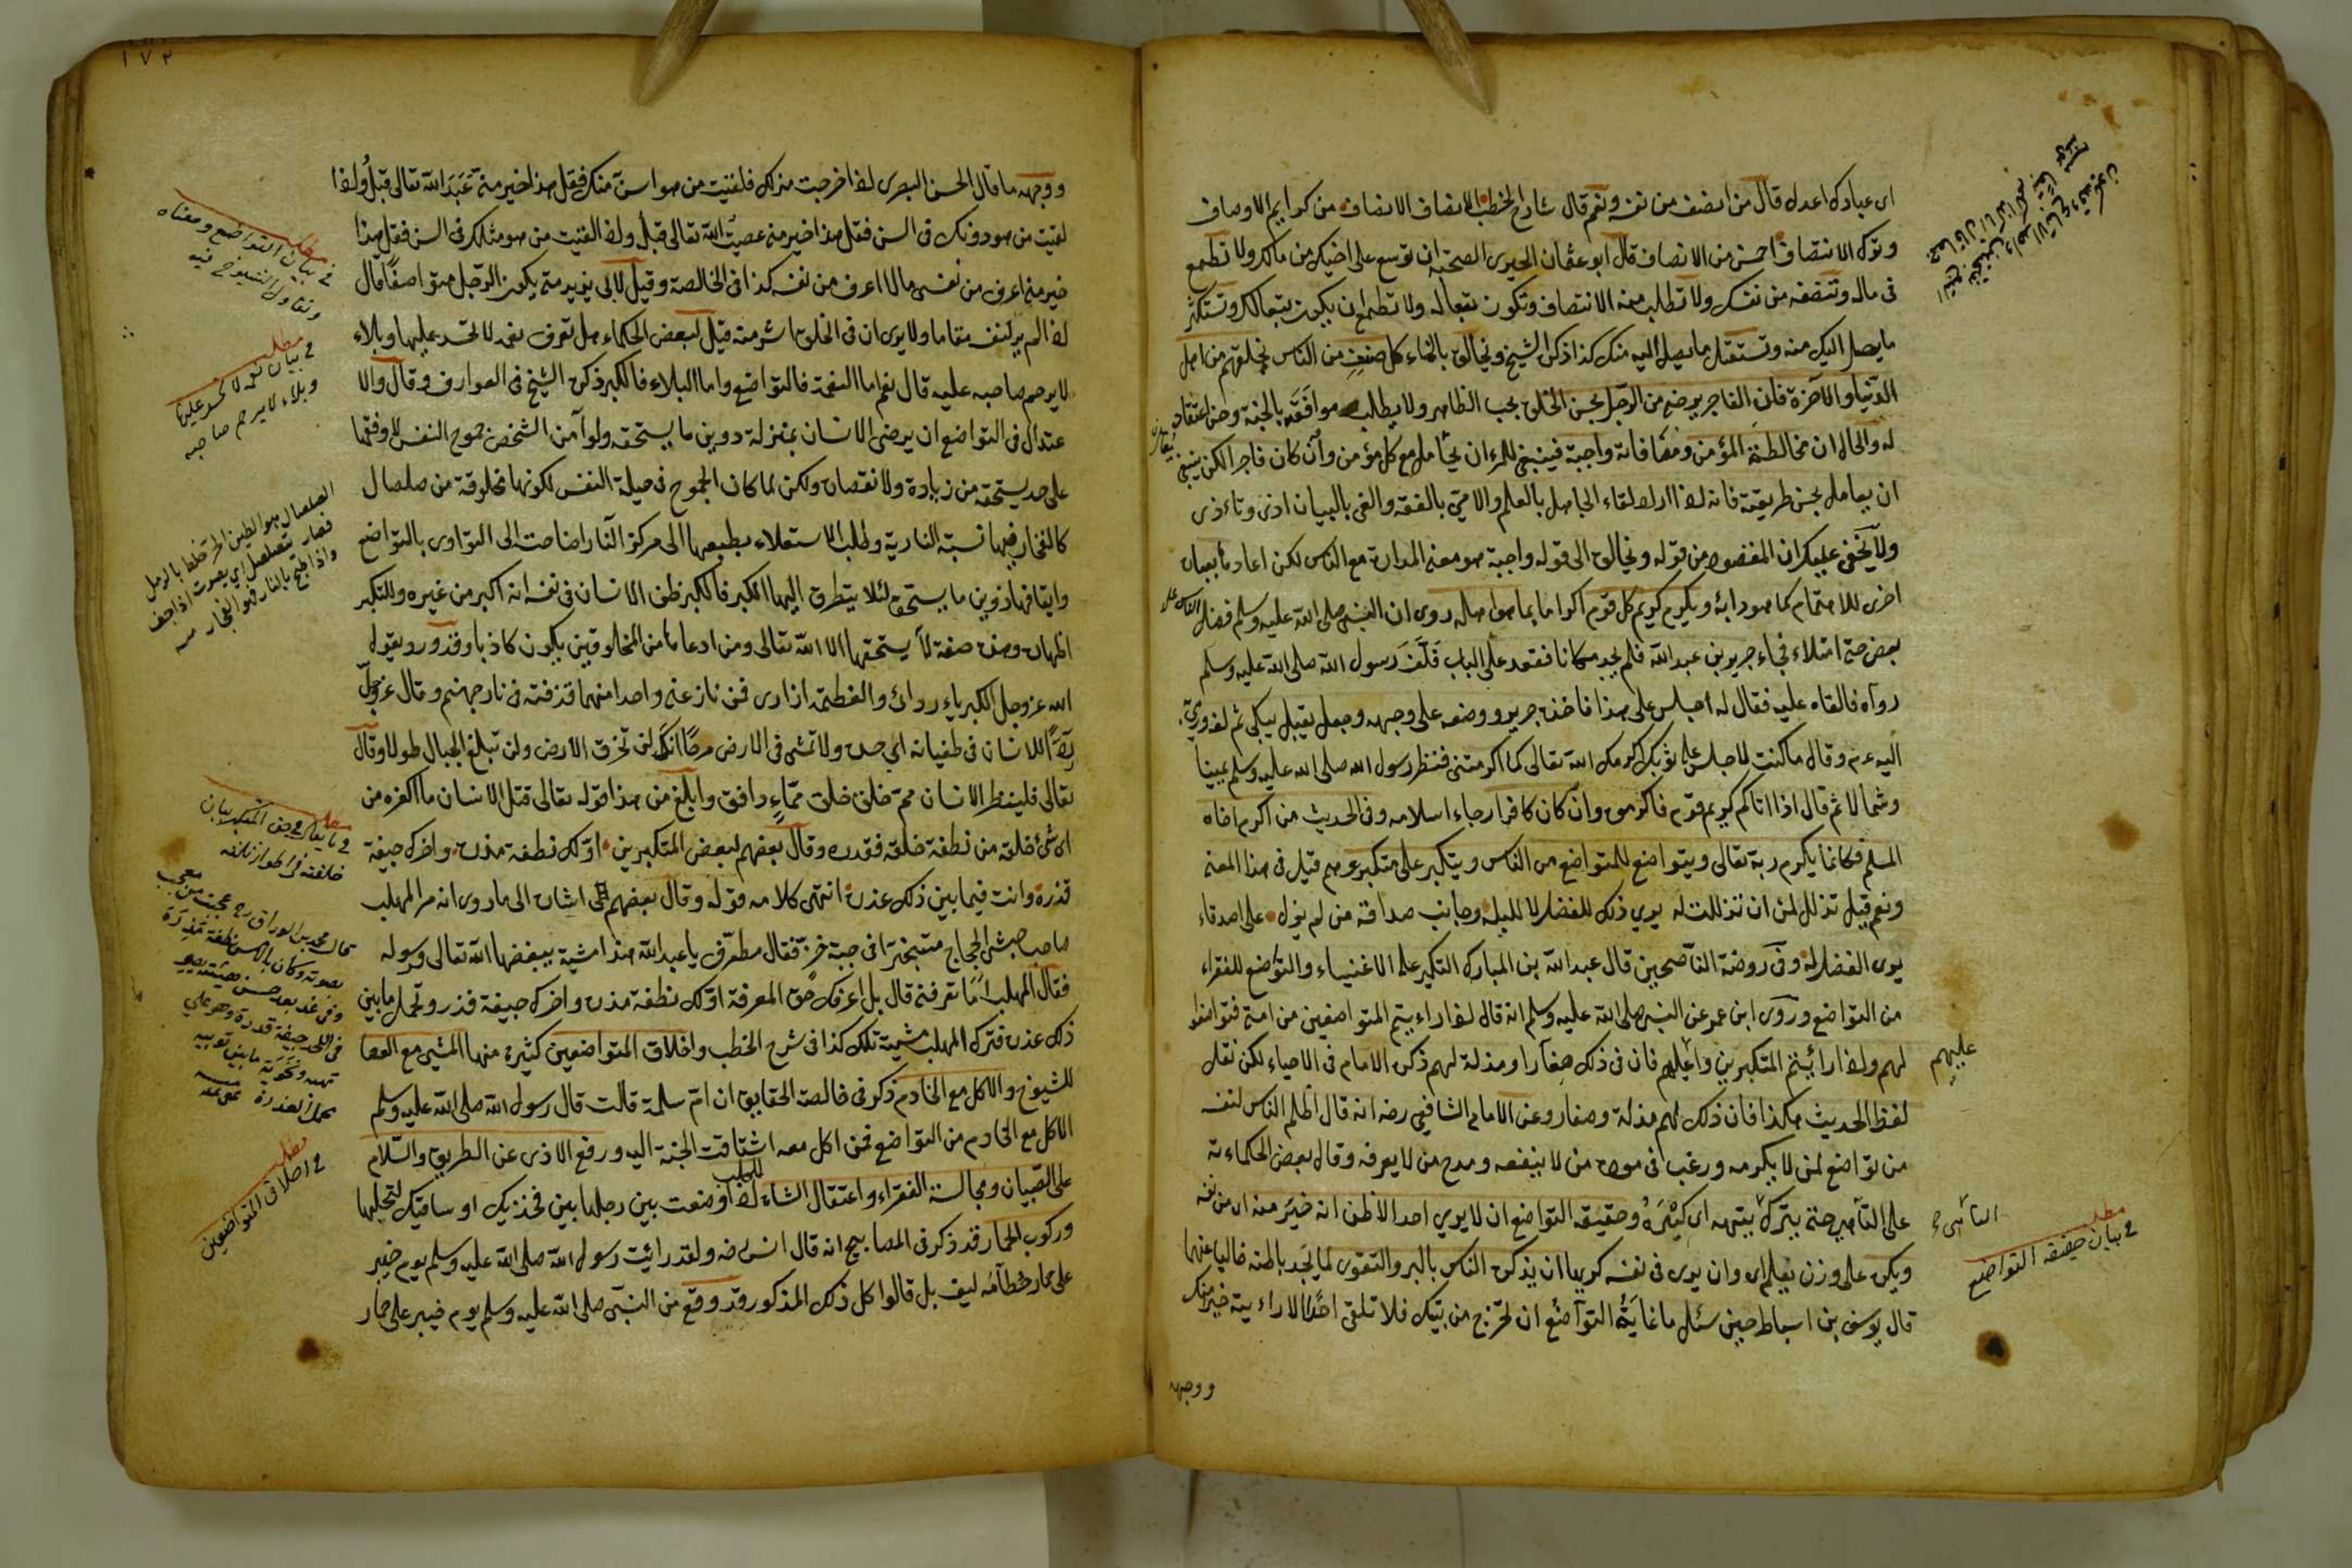 اى عبادك اعدل قال من انصف من نفسه ونعم قال شارح الخطب الانصاف الانصاف من كرايم الاوصاف
وترك الانتصاف احسن من الانصاف قال ابو عثمان الحيرى الصحبة ان توسع على اخيك من مالك ولا تطمع
فى ماله وتنصفه من نفسك ولا تطلب منه الانتصاف وتكون تبعا له ولا تطمع ان يكون تبعا لك وتستكثر
ما يصل اليك منه وتستقل ما يصل اليه منك كذا ذكر الشيخ ويخالق بالخاء كل صنف من الناس بخلقهم من اهل
الدنيا والآخرة فان الفاجر يرضى من الرجل بحسن الخلق بحسب الظاهر ولا يطالب موافقة بالجنة وحسن اعتقاد
له والحال ان مخالطة المؤمن ومصافاته واجبة فينبغى للمرء ان يتأمل مع كل مؤمن وان كان فاجرا لكن ينبغى
ان يعامل بحسن طريقة فانه اذا اراد لقاء الجاهل بالعلم والامى بالفقه والغى بالبيان اذى وتأذى
ولا يخفى عليك ان المقصود من قوله ويخالق الى قوله واجبة هو معنى المدارة مع الناس لكن اعاد بعبارة
اخرى للاهتمام كما هو دابه ويكرم كريم كل قوم اكراما بما هو اهله روى ان النبى صلى الله عليه وسلم فضل الناس على
بعض حتى امتلاء فجاء جرير بن عبد الله فلم يجد مكانا فقعد على الباب فلف رسول الله صلى الله عليه وسلم
رداءه فالقاه عليه فقال له اجلس على هذا فاخذه جرير ووضعه على وجهه وجعل يقبل يبكى ثم لفه ورمى
اليه عم وقال ما كنت لاجلس على ثوبك اكرمك الله تعالى كما اكرمتنى فنظر رسول الله صلى الله عليه وسلم يمينا
وشمالا ثم قال اذا اتاكم كريم قوم فاكرموه وان كان كافرا رجاء اسلامه وفى الحديث من اكرم اخاه
المسلم فكانما يكرم ربه تعالى ويتواضع للمتواضع من الناس ويتكبر على متكبرهم قيل فى هذا المعنى
ونعم قيل تذلل لمن ان تذللت له يرى ذلك للفضل لا للبله وجانب صداقة من لم يزل على اصدقاء
يرى الفضل له وفى روضة الناصحين قال عبد الله بن المبارك التكبر على الاغنياء والتواضع للفقراء
من التواضع وروى ابن عمر عن النبى صلى الله عليه وسلم انه قال اذا رايتم المتواضعين من امتى فتواضعوا
لهم واذا رأيتم المتكبرين فان فى ذلك صغارا ومذلة لهم ذكره الامام فى الاحياء لكن نقل
عليهم
لفظ الحديث هكذا فان ذلك لهم مذلة وصغار وعن الامام الشافعى رضه انه قال اظلم الناس لنفسه
من تواضع لمن لا يكرمه ورغب فى مودة من لا ينفعه ومدح من لا يعرفه وقال بعض الحكماء
حتى يترك بيته اى كبره وحقيقة التواضع ان لا يرى احدا الا ظن انه خير منه اى من نفسه
مطلب
فى بيان حقيقة التواضع
ويكره على وزن يعلم اى وان يرى فى نفسه كريها ان يذكره الناس بالبر والتقوى لما يجد باطنه خاليا عنهما
قال يوسف بن اسباط حين سئل ما غاية التواضع ان تخرج من بيتك فلا تلقى احدا الا رايته خيرا منك
ووجهه
١٧٢
ووجهه ما قال الحسن البصرى اذا خرجت منزلك فلقيت من هو اسن منك فقل هذا خير منى عبد الله تعالى قبلى واذا
لقيت من هو دونك فى السن فقل هذا خير منى عصيت الله تعالى قبل واذا لقيت من هو مثلك فى السن فقل هذا
خير منى اعرف من نفسى مالا اعرف من نفسه كذا فى الخالصة وقيل لابى يزيد متى يكون الرجل متواضعا قال
اذا لم ير لنفسه مقاما ولا يرى ان فى الخلق اشر منه قيل لبعض الحكماء هل تعرف نعمة لا تحسد عليها وبلاء
لا يرحم صاحبه عليه قال نعم اما النعمة فالتواضع واما البلاء فالكبر ذكره الشيخ فى العوارف وقال والا
عتدال فى التواضع ان يرضى الانسان بمنزلة دوين ما يستحقه ولو امن الشخص جموح النفس لاوقفها
على حد يستحقه من زيادة ولا نقصان ولكن لما كان الجموح فى جبلة النفس لكونها مخلوقة من صلصال
كالفخار فيها نسبة النارية وطلب الاستعلاء بطبعها الى مركز النار احتاجت الى التداوى بالتواضع
وايقافها دوين ما يستحقه لئلا يتطرق اليها الكبر فالكبر ظن الانسان فى نفسه انه اكبر من غيره والتكبر
اظهاره وهذه صفة لا يستحقها الا الله تعالى ومن ادعاها من المخلوقين يكون كاذبا وقد ورد يقول
الله عز وجل الكبرياء ردائى والعظمة ازارى فمن نازعنى واحدا منهما قذفته فى نار جهنم وقال عز وجل
ردا للانسان فى طغيانه الى حده ولا تمش فى الارض مرحا انك لن تخرق الارض ولن تبلغ الجبال طولا وقال
تعالى فلينظر الانسان مم خلق خلق من ماء دافق وابلغ من هذا قوله تعالى قتل الانسان ما اكفره من
اى شئ خلقه من نطفة خلقه فقدره وقال بعضهم لبعض المتكبرين اولك نطفة مذرة واخرك جيفة
قذرة وانت فيما بين ذلك عذرة انتهى كلامه قوله وقال بعضهم الخ اشارة الى ما روى انه مر المهلب
صاحب جيش الحجاج متبخترا فى جبة خز فقال مطرف يا عبد الله هذه مشية يبغضها الله تعالى ورسوله
فقال المهلب اما تعرفنى قال بل اعرفك حق المعرفة اولك نطفة مذرة واخرك جيفة قذرة وتحمل ما بين
ذلك عذرة فترك المهلب مشيته تلك كذا فى شرح الخطب واخلاق المتواضعين كثيرة منها المشى مع العصا
للشيوخ والاكل مع الخادم ذكر فى خالصة الحقايق ان ام سلمة قالت قال رسول الله صلى الله عليه وسلم
الاكل مع الخادم من التواضع فمن اكل معه اشتاقت الجنة اليه ورفع الاذى عن الطريق والسلام
على الصبيان ومجالسة الفقراء واعتقال الشاة للحلب اذا وضعت بين رجلها بين فخذيك او ساقيك لتحلبها
وركوب الحمار قد ذكر فى المصابيح انه قال انس رضه ولقد رأيت رسول الله صلى الله عليه وسلم يوم خيبر
على حمار خطامه ليف بل قالوا كل ذلك المذكور قد وقع من النبى صلى الله عليه وسلم يوم خيبر على حمار
مطلب
فى بيان التواضع ومعناه
مطلب
فى بيان نعمة لا تحسد عليها
وبلاء لا يرحم صاحبه
الصلصال هو الطين الحر خلط بالرمل
فصار يتصلصل اى يصوت اذا جف
واذا طبخ بالنار فهو الفخار
مطلب
مطلب
فى اخلاق المتواضعين